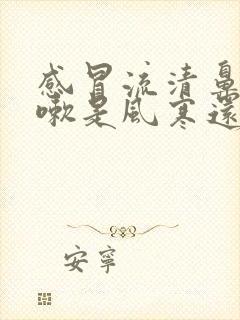 感冒流清鼻
嗽是風寒還
安寧